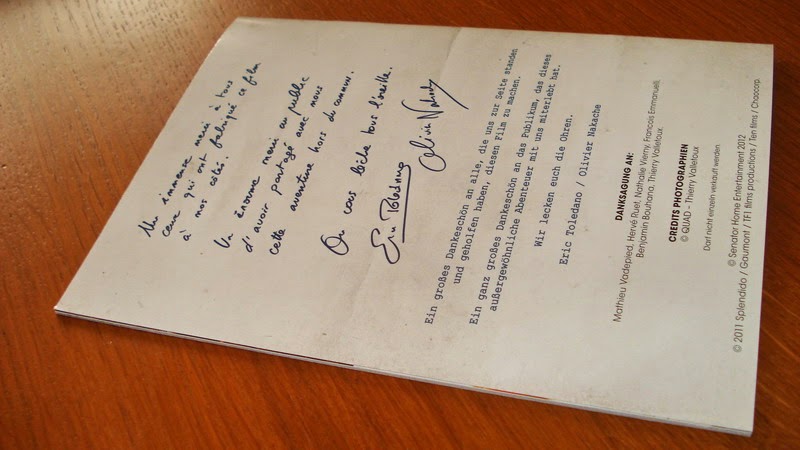 Un immense merci à tous
ceux qui ont fabriqué ce film
à nos cotés.
Un énorme merci au public
d'avoir partagé avec nous
cette aventure hors du commun.
On vous lèche tous l'oreille.
Eric Toledano
Olivier Nakache
Ein großes Dankeschön an alle, die uns zur Seite standen
und geholfen haben, diesen Film zu machen.
Ein ganz großes Dankeschön an das Publikum, das dieses
außergewöhnliche Abenteuer mit uns miterlebt hat.
Wir lecken euch die Ohren.
Eric Toledano / Olivier Nakache
DANKSAGUNG AN:
Mathieu Vadepied, Hervé Ruet, Nathalie Vierny, François Emmanuelli,
Benjamin Bouhana, Thierry Valletoux
CREDITS PHOTOGRAPHIEN
© QUAD – Thierry Valletoux
Darf nicht einzeln verkauft werden.
© Senator Home Entertainment 2012
© 2011 Splendido / Gaumont / TF1 films productions / Ten films / Chaocorp.